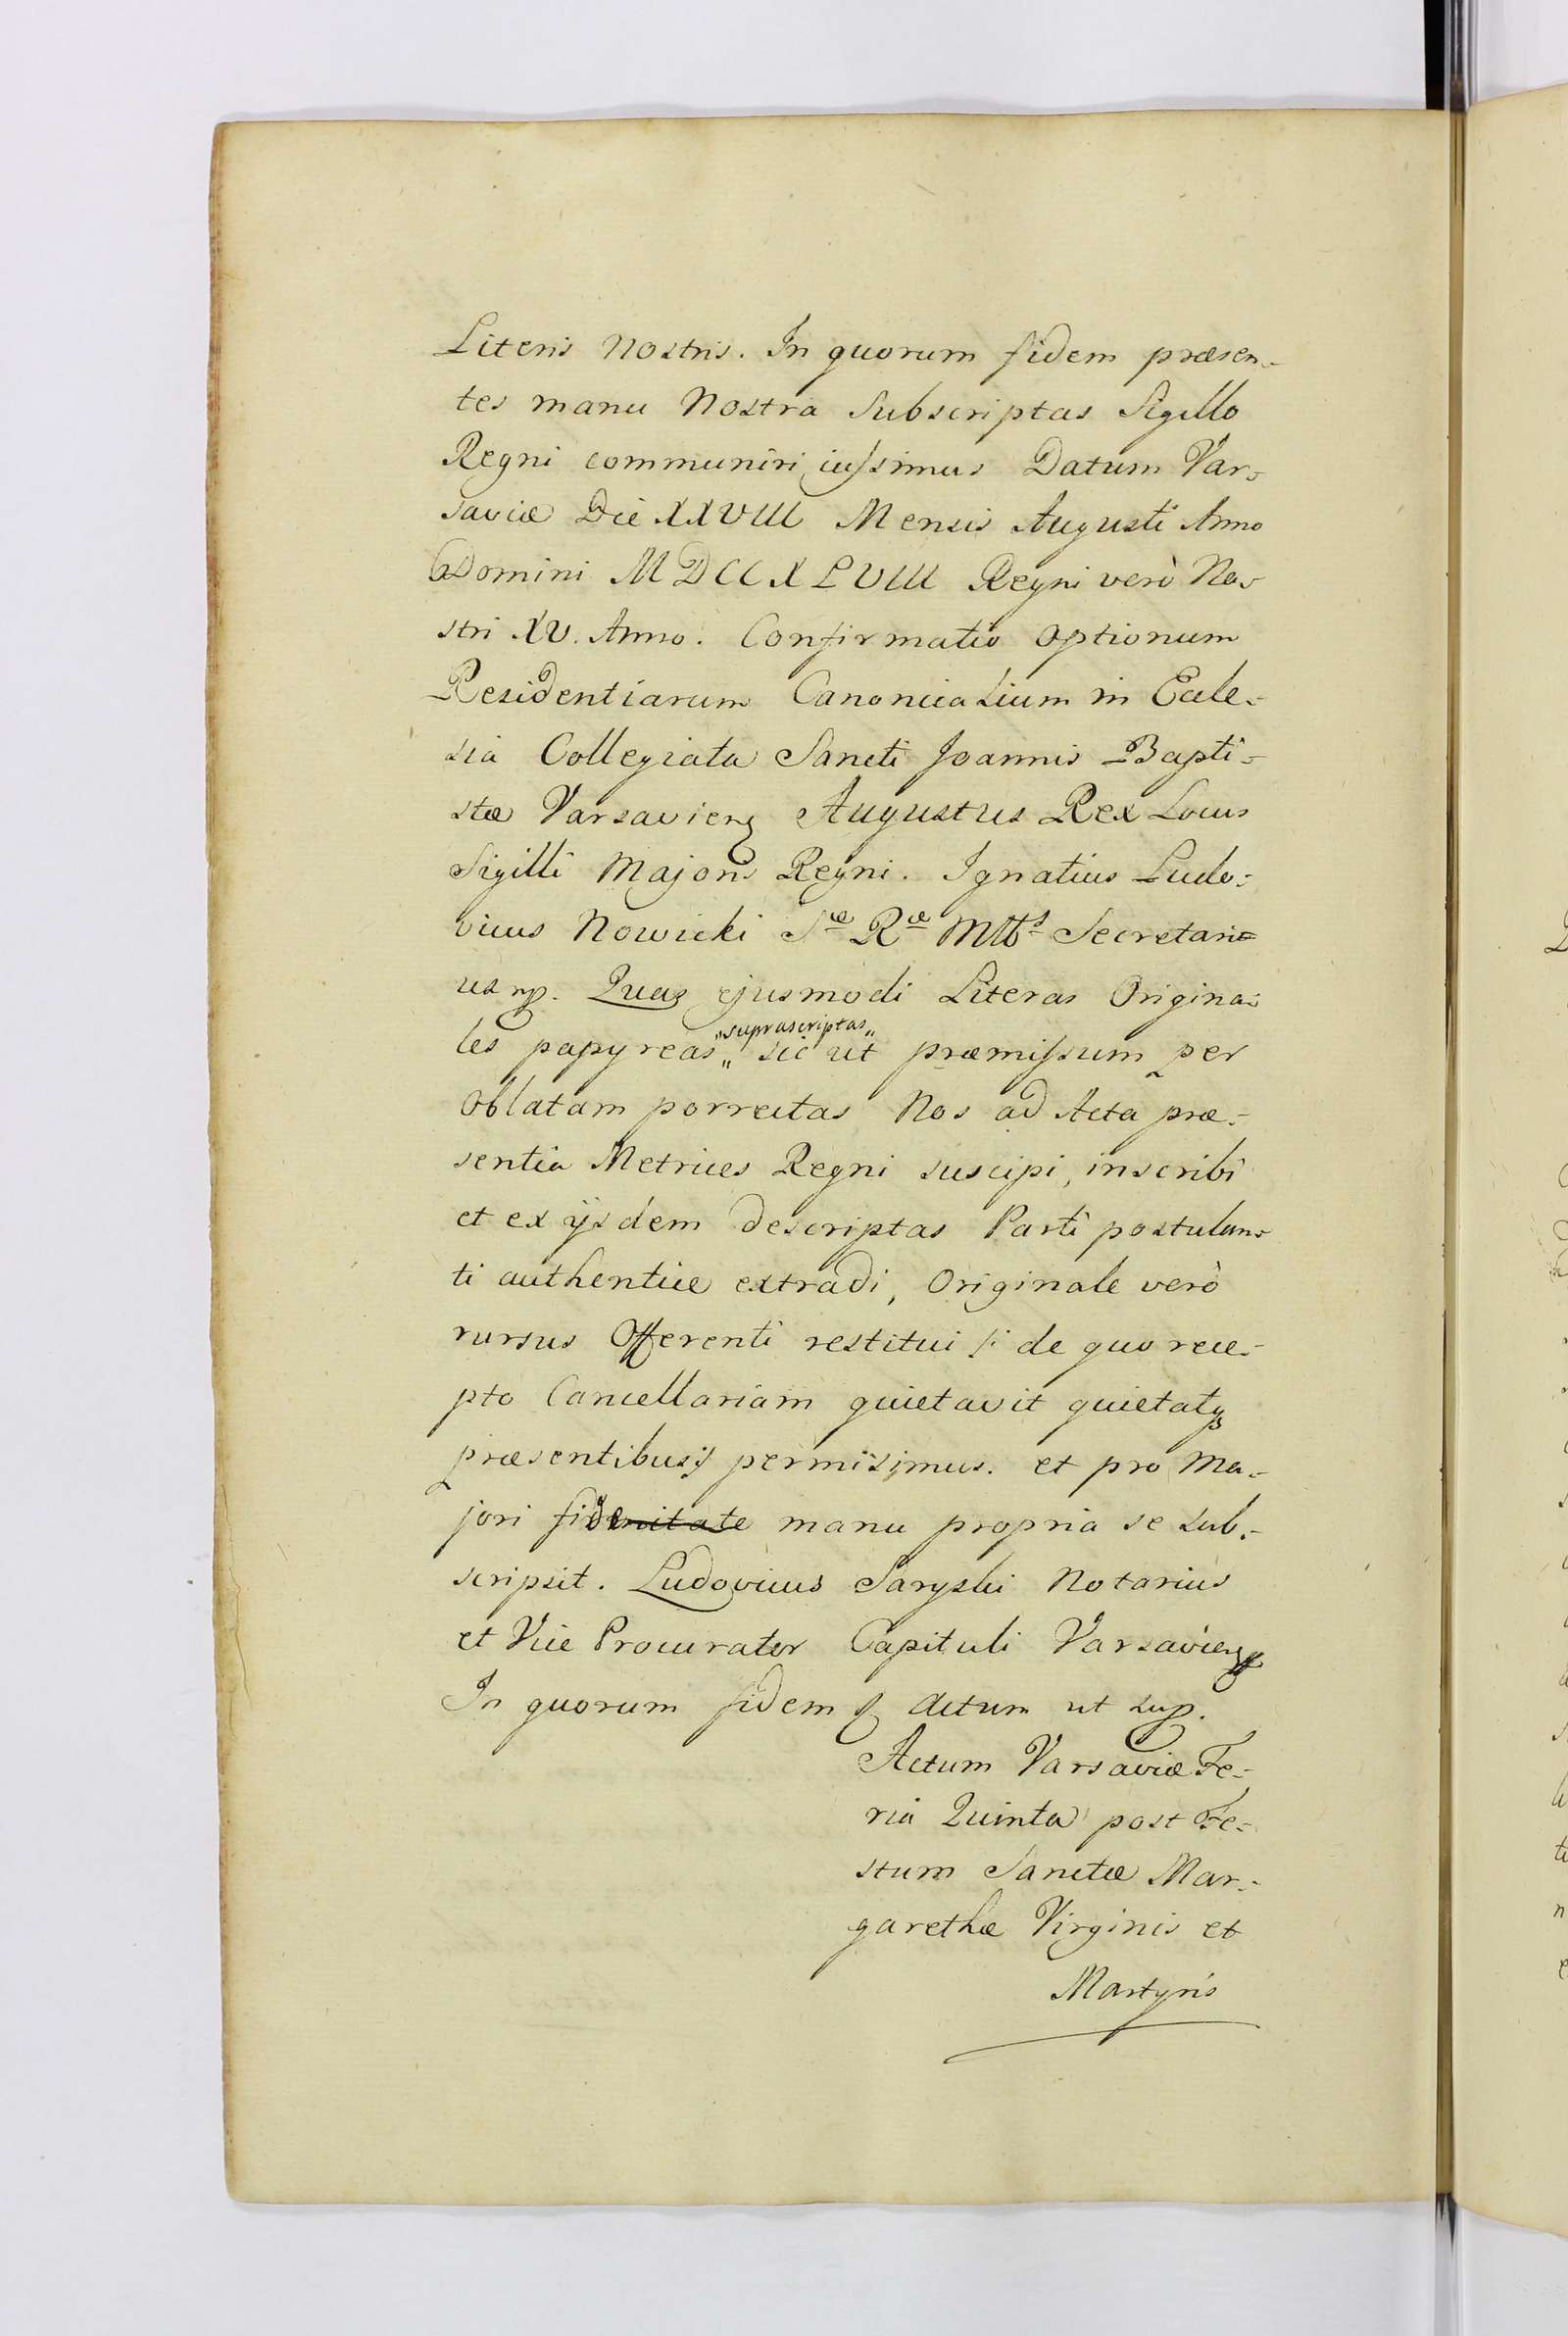 Literis Nostris. In quorum fidem præsen-
tes manu Nostra Subscriptas Sigillo
Regni communiri iussimus Datum Var-
saviæ Die XXVIII Mensis Augusti Anno
Domini MDCCXLVIII Regni verò No-
stri XV. Anno. Confirmatio Optionum
Residentiarum Canonicalium in Eccle-
sia Collegiata Sancti Joannis Bapti-
stæ Varsavien Augustus Rex Locus
Sigilli Majoris Regni. Ignatius Ludo-
vicus Nowicki Sæ Ræ Mttis Secretari-
us mp. Quas ejusmodi Literas Origina-
les papyreas „suprascriptas„ sic ut præmissum per
Oblatam porrectas Nos ad Acta præ-
sentia Metrices Regni suscipi, inscribi
et ex ijsdem descriptas Parti postulan-
ti authentice extradi, Originale verò
rursus Offerenti restitui /: de quo rece-
pto Cancellariam quietavit quietatq
præsentibus :/ permisimus. et pro Ma-
jori fide manu propria se sub-
scripsit. Ludovicus Saryski Notarius
et Vice Procurator Capituli Varsavien
In quorum fidem Actum ut sup.
Actum Varsaviæ Fe-
ria Quinta post Fe-
stum Sanctæ Mar-
garethæ Virginis et
Martyris